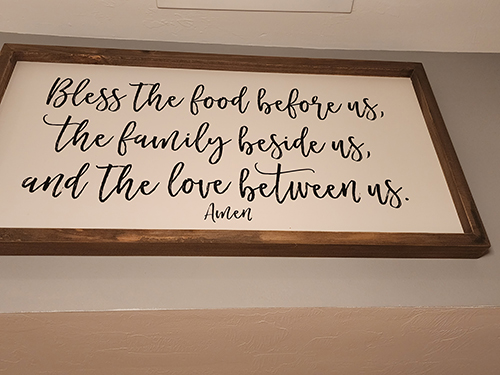 Bless the food before us,
the family beside us,
and the love between us.
Amen